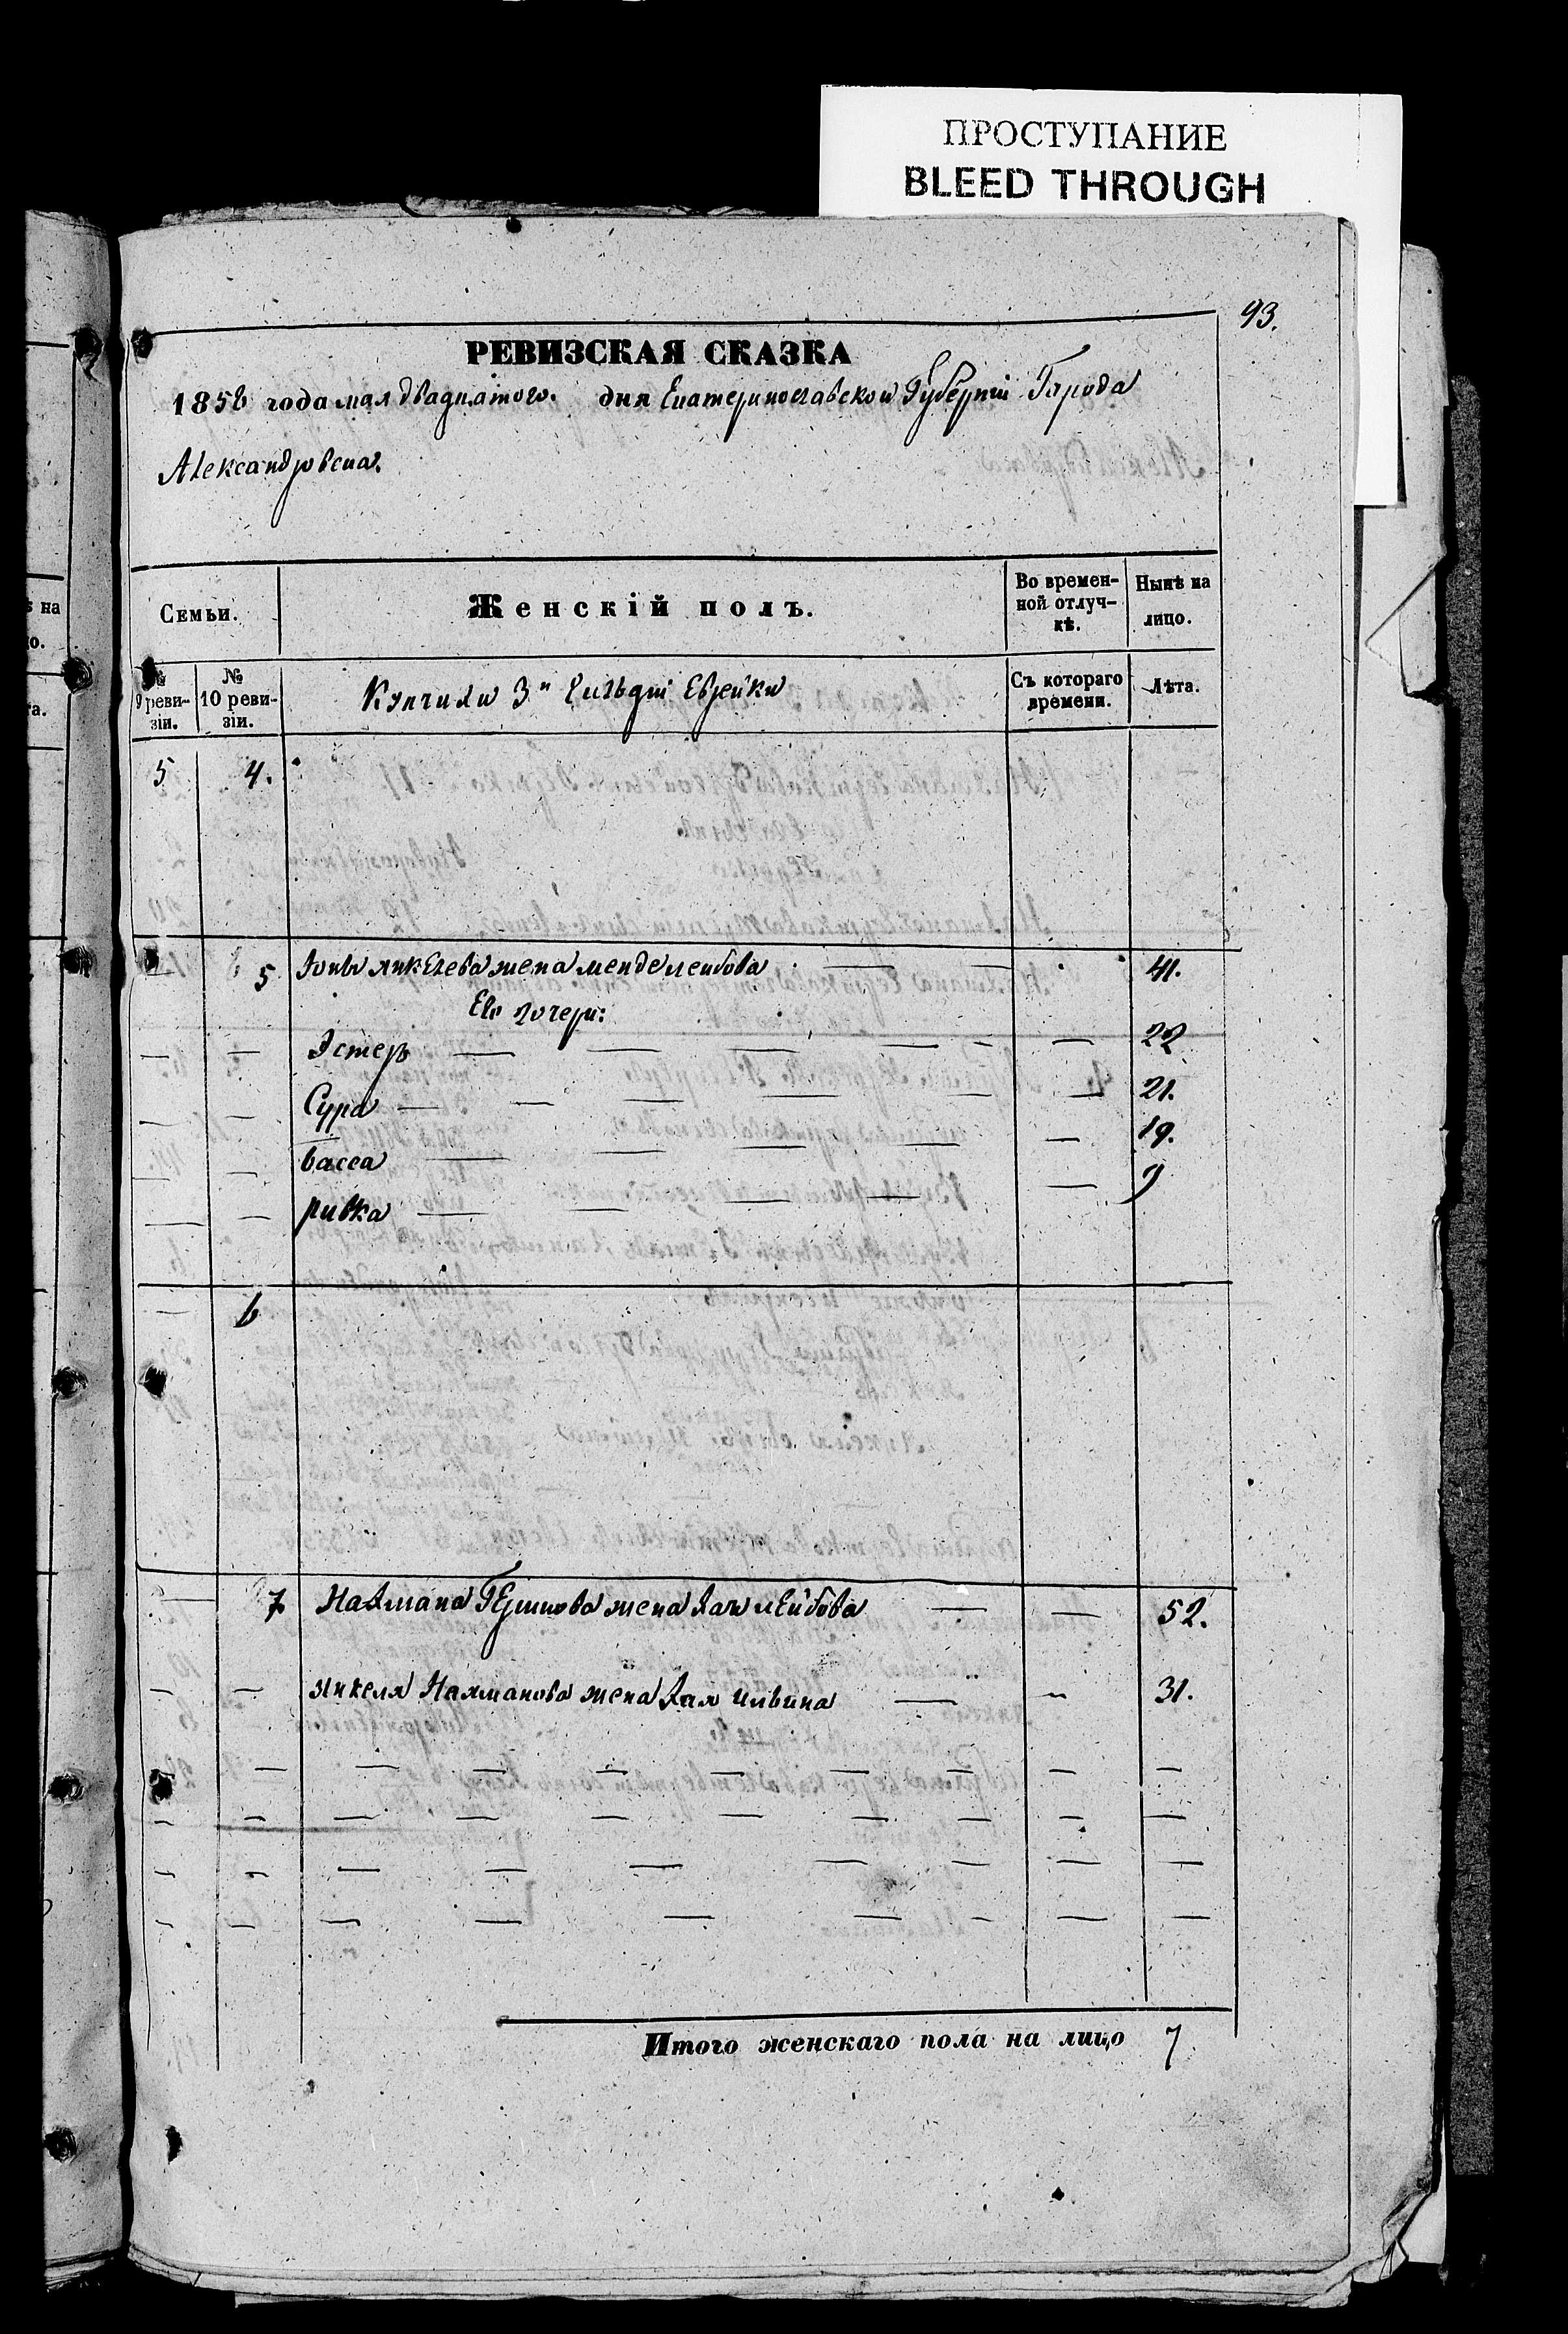 ПРОСТУПАНИЕ
BLEED THROUGH
93.
РЕВИЗСКАЯ СКАЗКА
1858 года мая двадцатого. дня Екатеринославской Губерніи Города
Александровска.
Семьи.
Женскій полъ.
Во времен-
ной отлуч-
кѣ.
Нынѣ на
лицо.
№
9 реви-
зіи.
№
10 реви-
зіи.
Купчихи 3й Гильдіи Еврейки
Съ котораго
времени.
Лѣта.
5 4.
5 Янкелева жена Менделеибова — — 41.
Его дочери:
— — Эстеръ — — — — — — 22
— — Сура — — — — — — 21.
— — Басса — — — — — 19.
— — Ривка — — — — — 9
— 6
— 7 Нахмана Гершкова жена Хая Лейбова — — 52.
— — Янкеля Нахманова жена Хая — — 31.
Итого женскаго пола на лицо 7